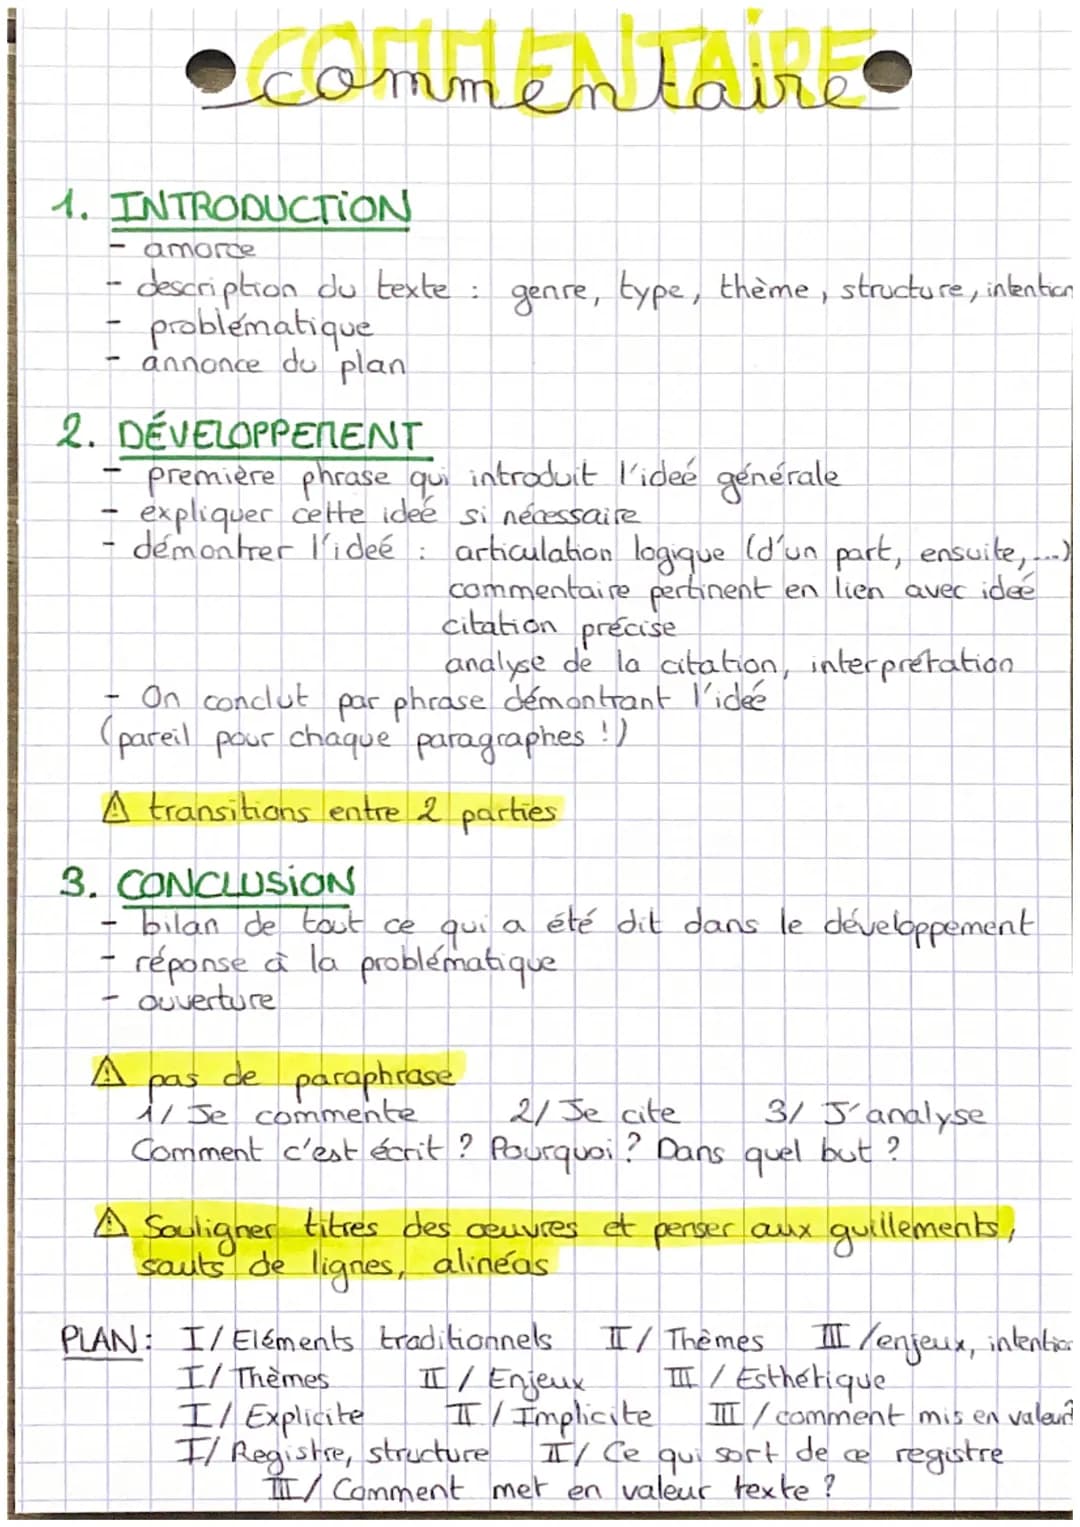 COMMENTAIRE
commentaire
1. INTRODUCTION
- amorce
- description du texte : genre, type, thème, structure, intention
- problématique
- annonce du plan
2. DÉVELOPPEMENT
- première phrase qui introduit l'ideé générale
- expliquer cette ideé si nécessaire
- démontrer l'ideé : articulation logique (d'un part, ensuite, ...)
commentaire pertinent en lien avec ideé
citation précise
analyse de la citation, interprétation
- On conclut par phrase démontrant l'ideé
(pareil pour chaque paragraphes !)
⚠ transitions entre 2 parties
3. CONCLUSION
- bilan de tout ce qui a été dit dans le développement
- réponse à la problématique
- ouverture
⚠ pas de paraphrase
1/ Je commente 2/ Je cite 3/ J'analyse
Comment c'est écrit ? Pourquoi ? Dans quel but ?
⚠ Souligner titres des œuvres et penser aux guillements,
sauts de lignes, alinéas
PLAN : I/ Eléments traditionnels II/ Thèmes III/enjeux, intention
I/ Thèmes II/ Enjeux III/ Esthétique
I/ Explicite II/ Implicite III/comment mis en valeur?
I/ Registre, structure II/ Ce qui sort de ce registre
III/ Comment met en valeur texte ?